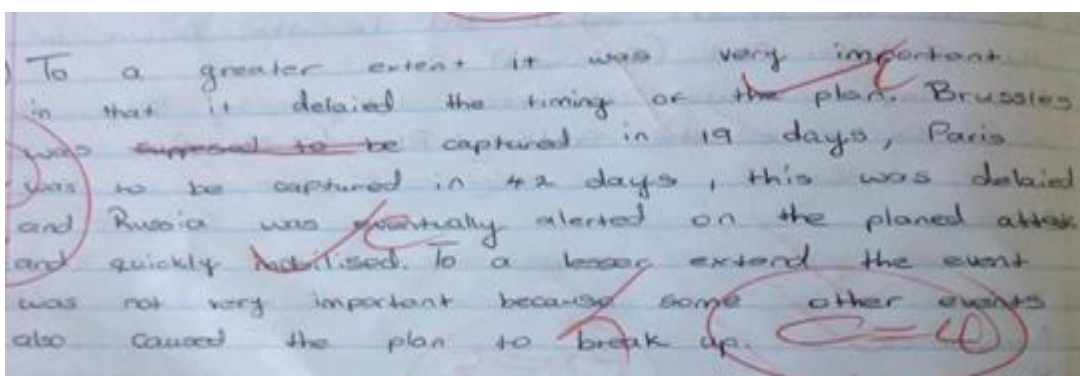 ) To a greater extent it was very important
in that it delaied the timing of the plan. Brussles
was supposed to be captured in 19 days, Paris
was to be captured in 42 days, this was delaied
and Russia was eventually alerted on the planed attak
and quickly mobilised. To a lesser extend the event
was not very important because some other events
also caused the plan to break up.